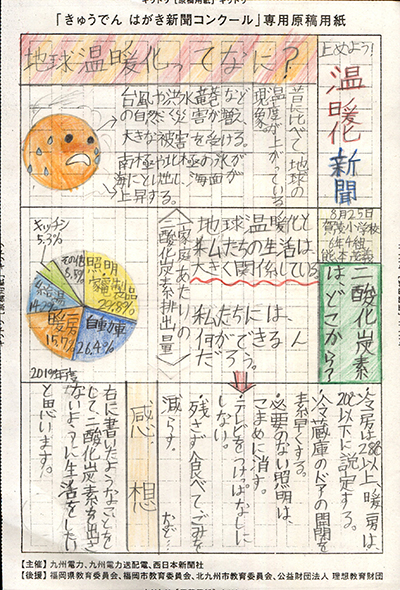 「きゅうでん はがき新聞コンクール」専用原稿用紙
地球温暖化ってなに？
止めよう！
温暖化新聞
8月25日
6年4組
昔に比べて、地球の
温度が上がっている
現象。
台風や洪水、竜巻など
の自然
大きな被害を受ける。
南極や北極の氷が
上昇する。
二酸化炭素
は、どこから？
地球温暖化
大きく関係している。
〈家庭あたりの
二酸化炭素排出量〉
キッチン
5.3%
照明・
家電製品
自動車
26.4%
暖房
15.7%
給湯
2019年度
・冷房は28℃以上、暖房は
20℃以下に設定する。
・冷蔵庫のドアの開閉を
素早くする。
・必要のない照明は、
こまめに消す。
・テレビをつけっぱなしに
しない。
・残さず食べてごみを
減らす。
など…
感想
右に書いたようなことを
して、二酸化炭素を出さ
ないように生活をしたい
と思います。
【主催】九州電力、九州電力送配電、西日本新聞社
【後援】福岡県教育委員会、福岡市教育委員会、北九州市教育委員会、公益財団法人 理想教育財団